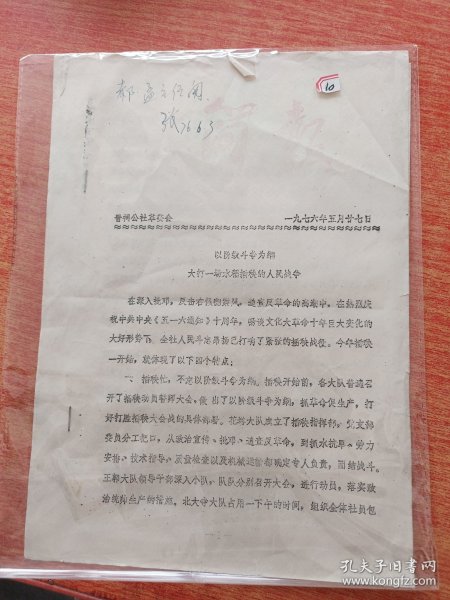 10
76.6.3
晋祠公社革委会 一九七六年五月廿七日
以阶级斗争为纲
大打一场水稻插秧的人民战争
在深入批邓，反击右倾翻案风，追查反革命的高潮中，在热烈庆
祝中共中央《五·一六通知》十周年，畅谈文化大革命十年巨大变化的
大好形势下，全社人民斗志昂扬已打响了紧张的插秧战役。今年插秧
一开始，就体现了以下四个特点：
一、插秧忙，不忘以阶级斗争为纲。插秧开始前，各大队普遍召
开了插秧动员誓师大会，做出了以阶级斗争为纲，抓革命促生产，打
好打胜插秧大会战的具体部署。花塔大队成立了插秧指挥部，党支部
委员分工把口，从政治宣传、批邓、追查反革命，到抓水抗旱、劳力
安排、技术指导、质量检查以及机械运输都确定专人负责，团结战斗。
王郭大队领导干部深入小队，队队分别召开大会，进行动员，落实政
治统帅生产的措施。北大寺大队占用一下午的时间，组织全体社员包
孔夫子旧书网
www.kongfz.com